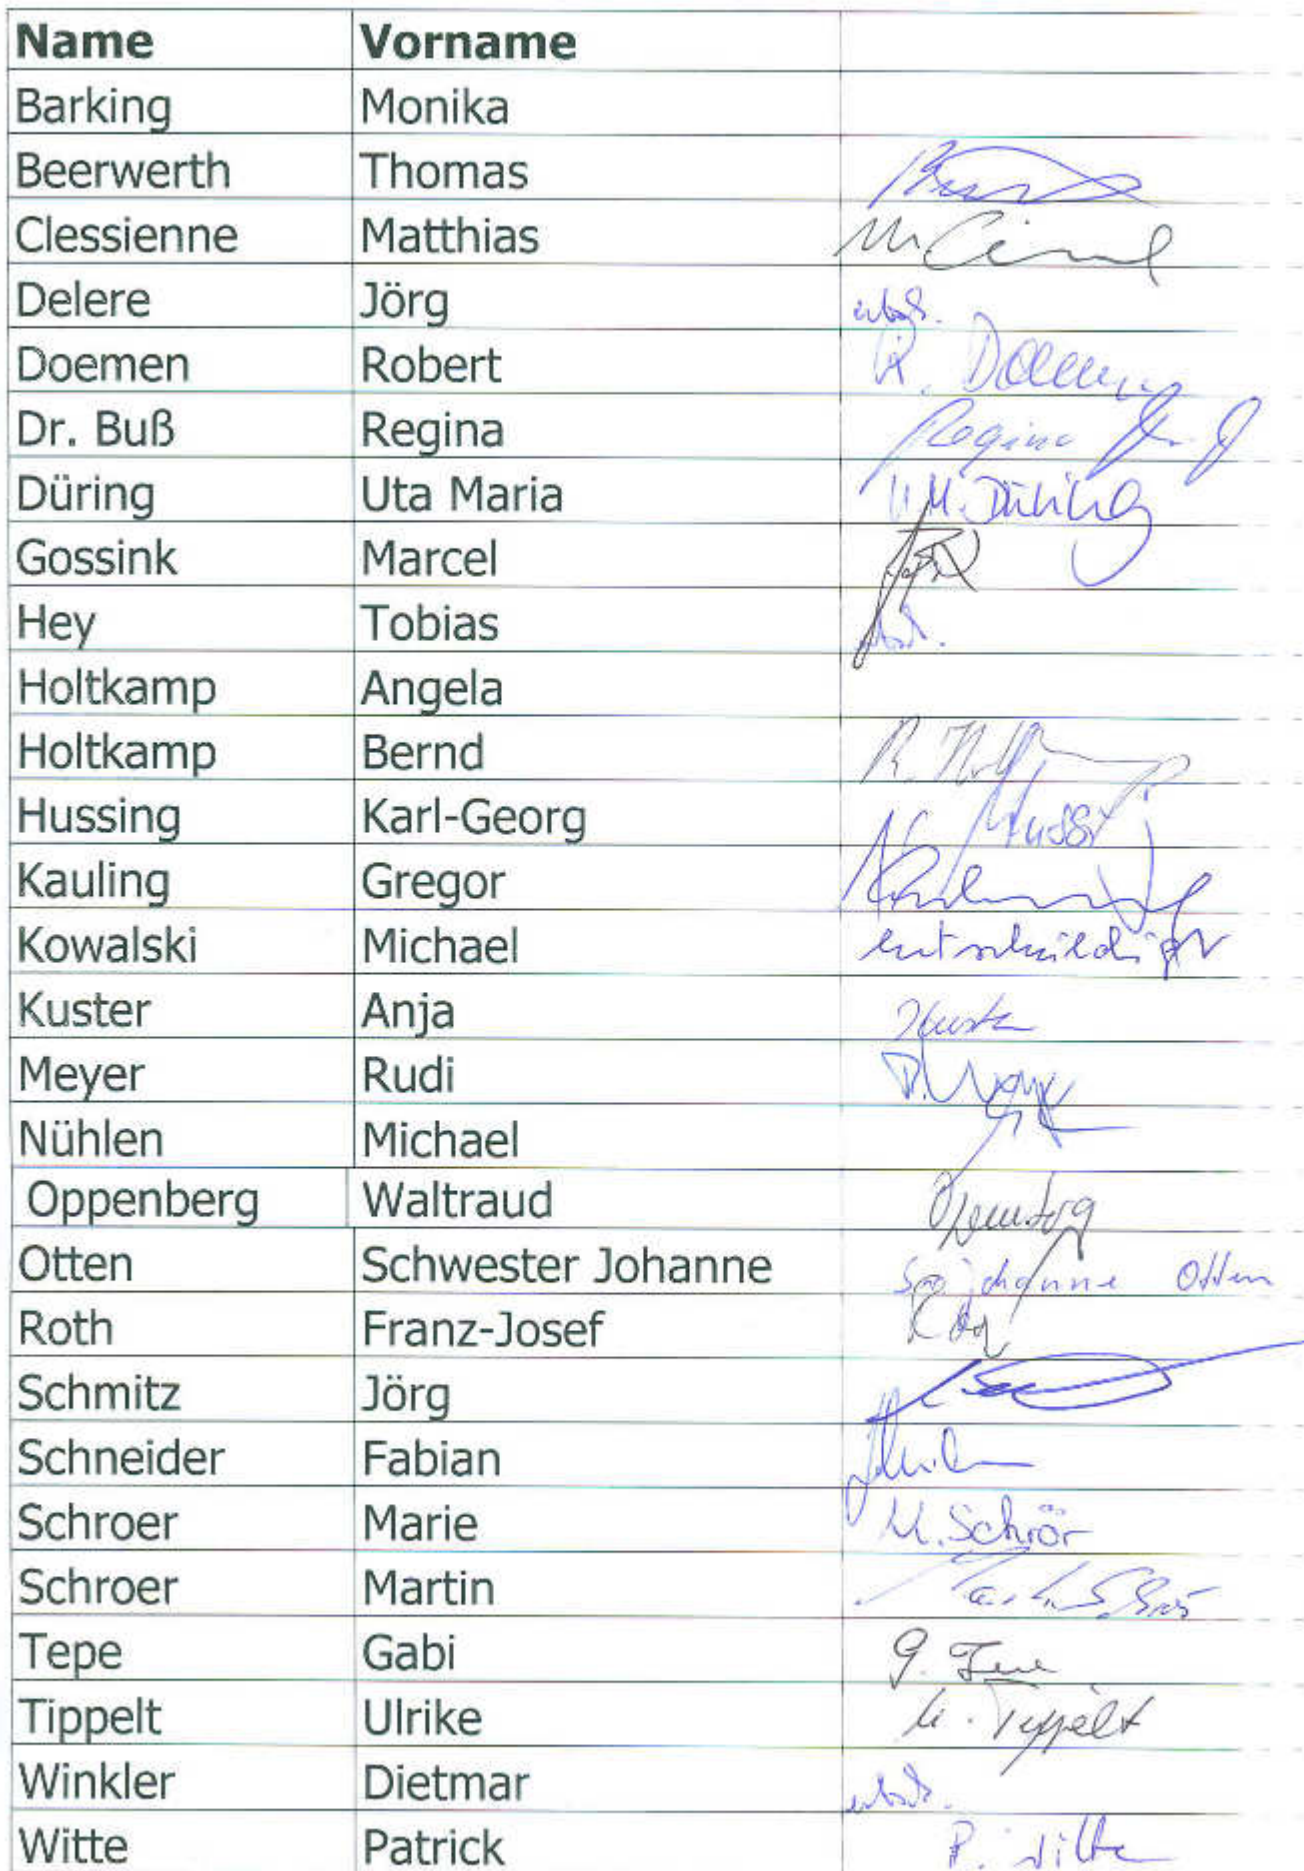 Name Vorname
Barking Monika
Beerwerth Thomas
Clessienne Matthias
Delere Jörg
Doemen Robert R. Doemen
Dr. Buß Regina Regina
Düring Uta Maria U.M. Düring
Gossink Marcel
Hey Tobias
Holtkamp Angela
Holtkamp Bernd
Hussing Karl-Georg
Kauling Gregor
Kowalski Michael entschuldigt
Kuster Anja Kuster
Meyer Rudi
Nühlen Michael
Oppenberg Waltraud
Otten Schwester Johanne Sr. Johanne Otten
Roth Franz-Josef
Schmitz Jörg
Schneider Fabian
Schroer Marie M. Schrör
Schroer Martin
Tepe Gabi G. Tepe
Tippelt Ulrike U. Tippelt
Winkler Dietmar
Witte Patrick P. Witte